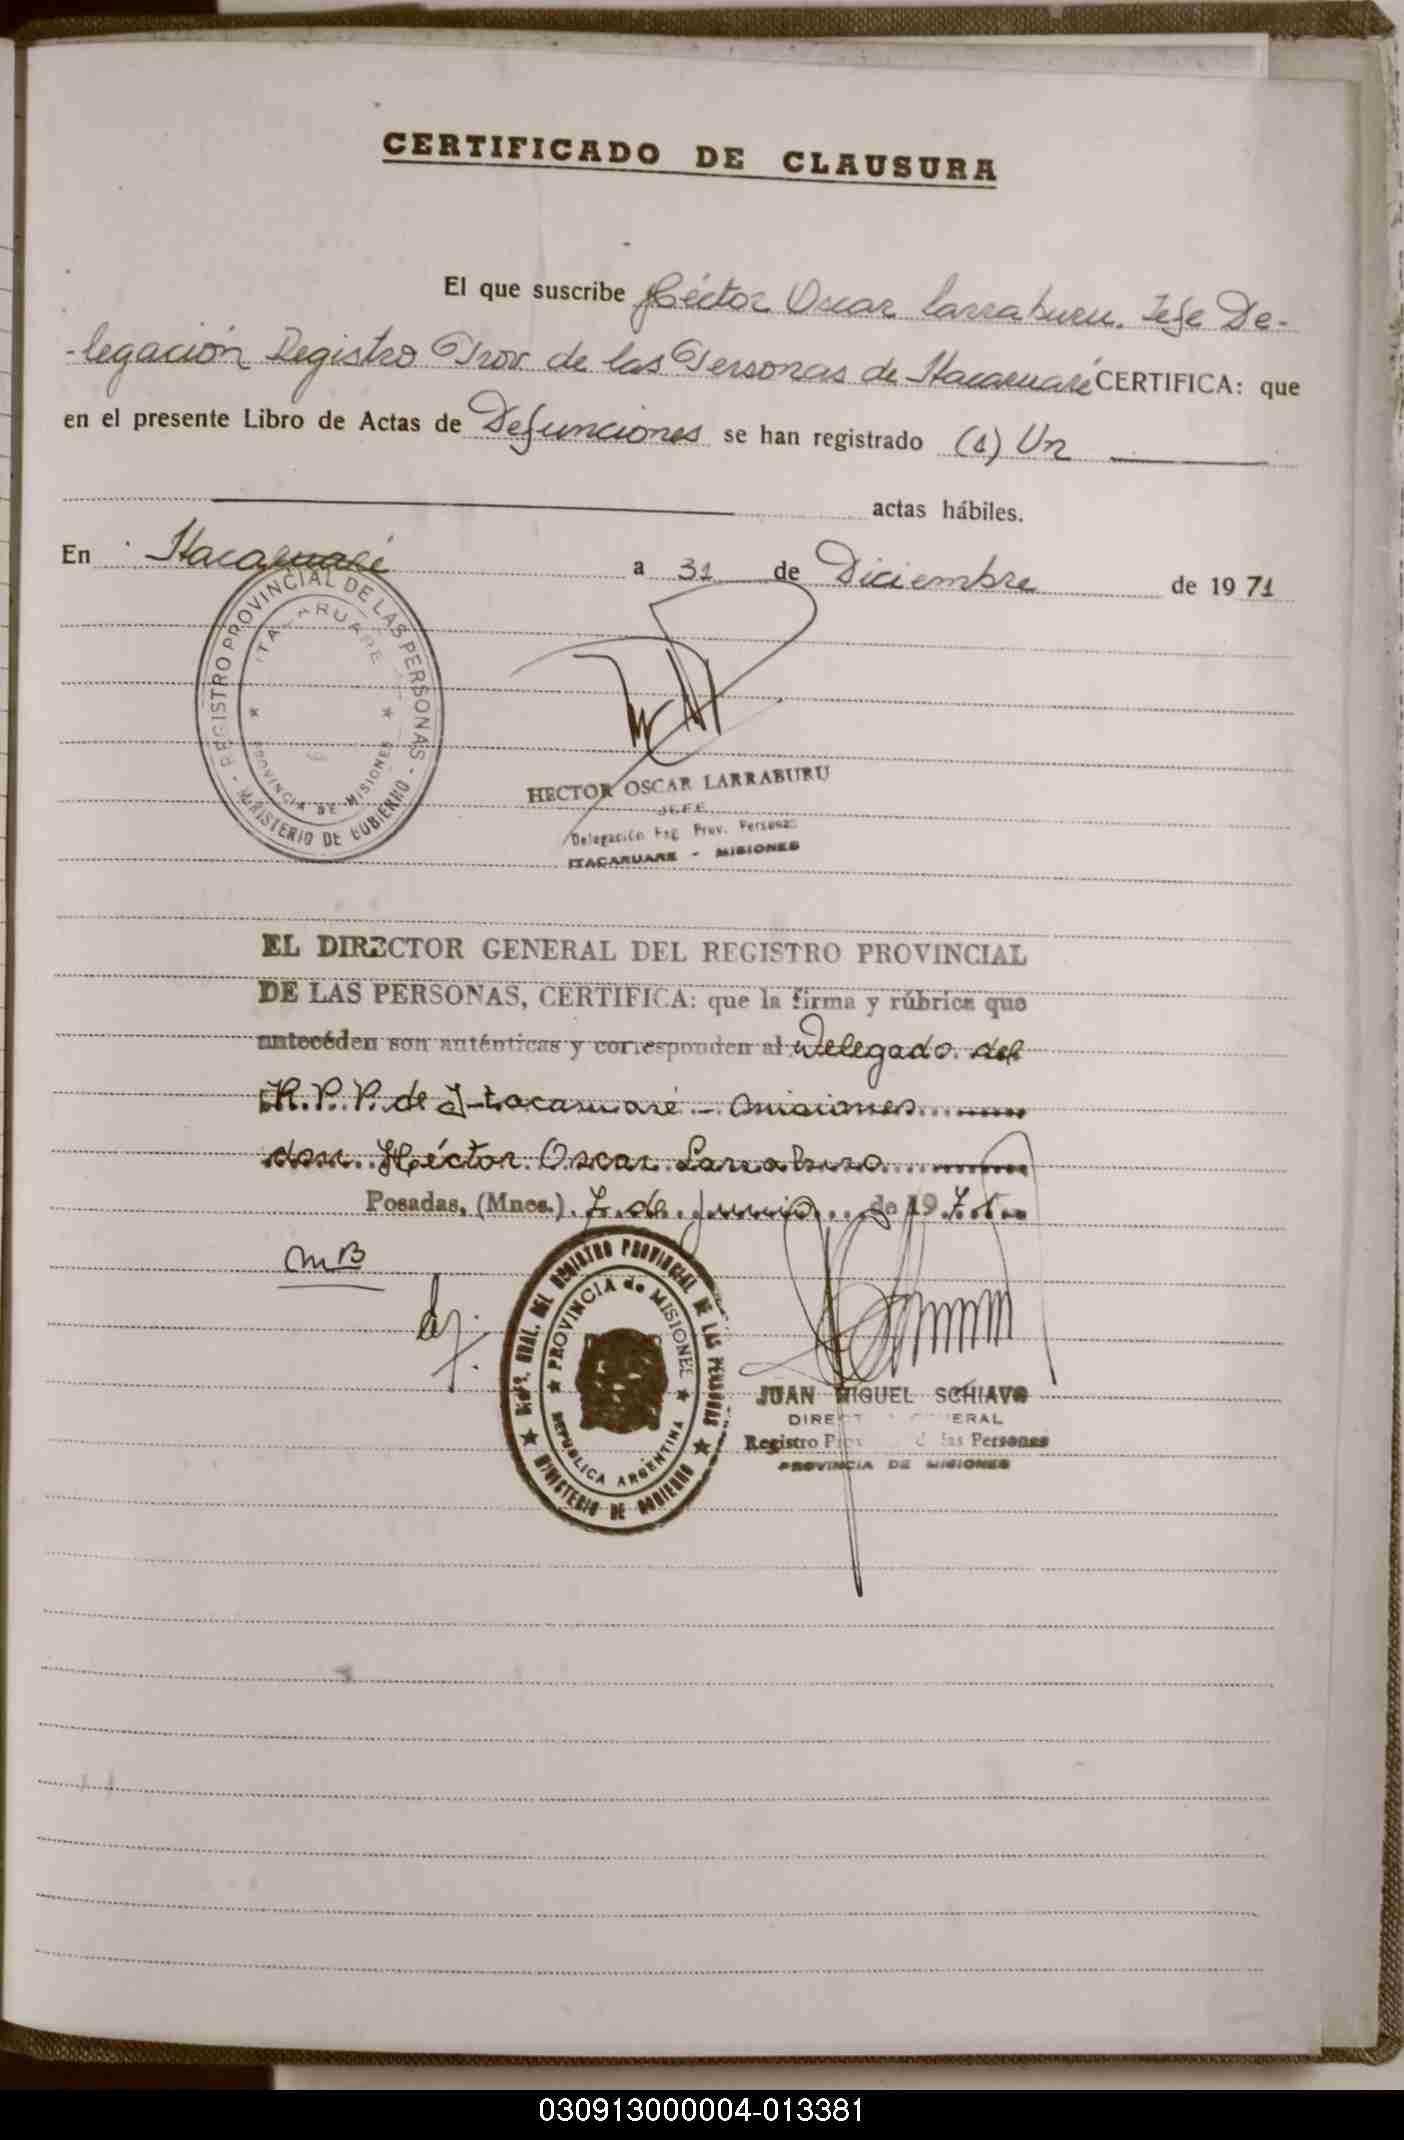 CERTIFICADO DE CLAUSURA
El que suscribe Héctor Oscar Larraburu. Jefe De-
-legación Registro Prov. de las Personas de Itacaruaré CERTIFICA: que
en el presente Libro de Actas de Defunciones se han registrado (1) Un
actas hábiles.
En Itacaruaré a 31 de Diciembre de 1971
REGISTRO PROVINCIAL DE LAS PERSONAS - MINISTERIO DE GOBIERNO -
ITACARUARE
* PROVINCIA DE MISIONES *
HECTOR OSCAR LARRABURU
JEFE
Delegación Reg. Prov. Personas
ITACARUARE - MISIONES
EL DIRECTOR GENERAL DEL REGISTRO PROVINCIAL
DE LAS PERSONAS, CERTIFICA: que la firma y rúbrica que
anteceden son auténticas y corresponden al Delegado del
R.P.P. de Itacaruaré - Misiones
don Héctor Oscar Larraburo
Posadas, (Mnes.) 7 de Junio de 197
MB
GRAL. DEL REGISTRO PROVINCIAL DE LAS PERSONAS
★ MINISTERIO DE GOBIERNO ★
★ PROVINCIA de MISIONES ★
REPUBLICA ARGENTINA
JUAN MIGUEL SCHIAVO
DIRECTOR GENERAL
Registro Prov. de las Personas
PROVINCIA DE MISIONES
030913000004-013381